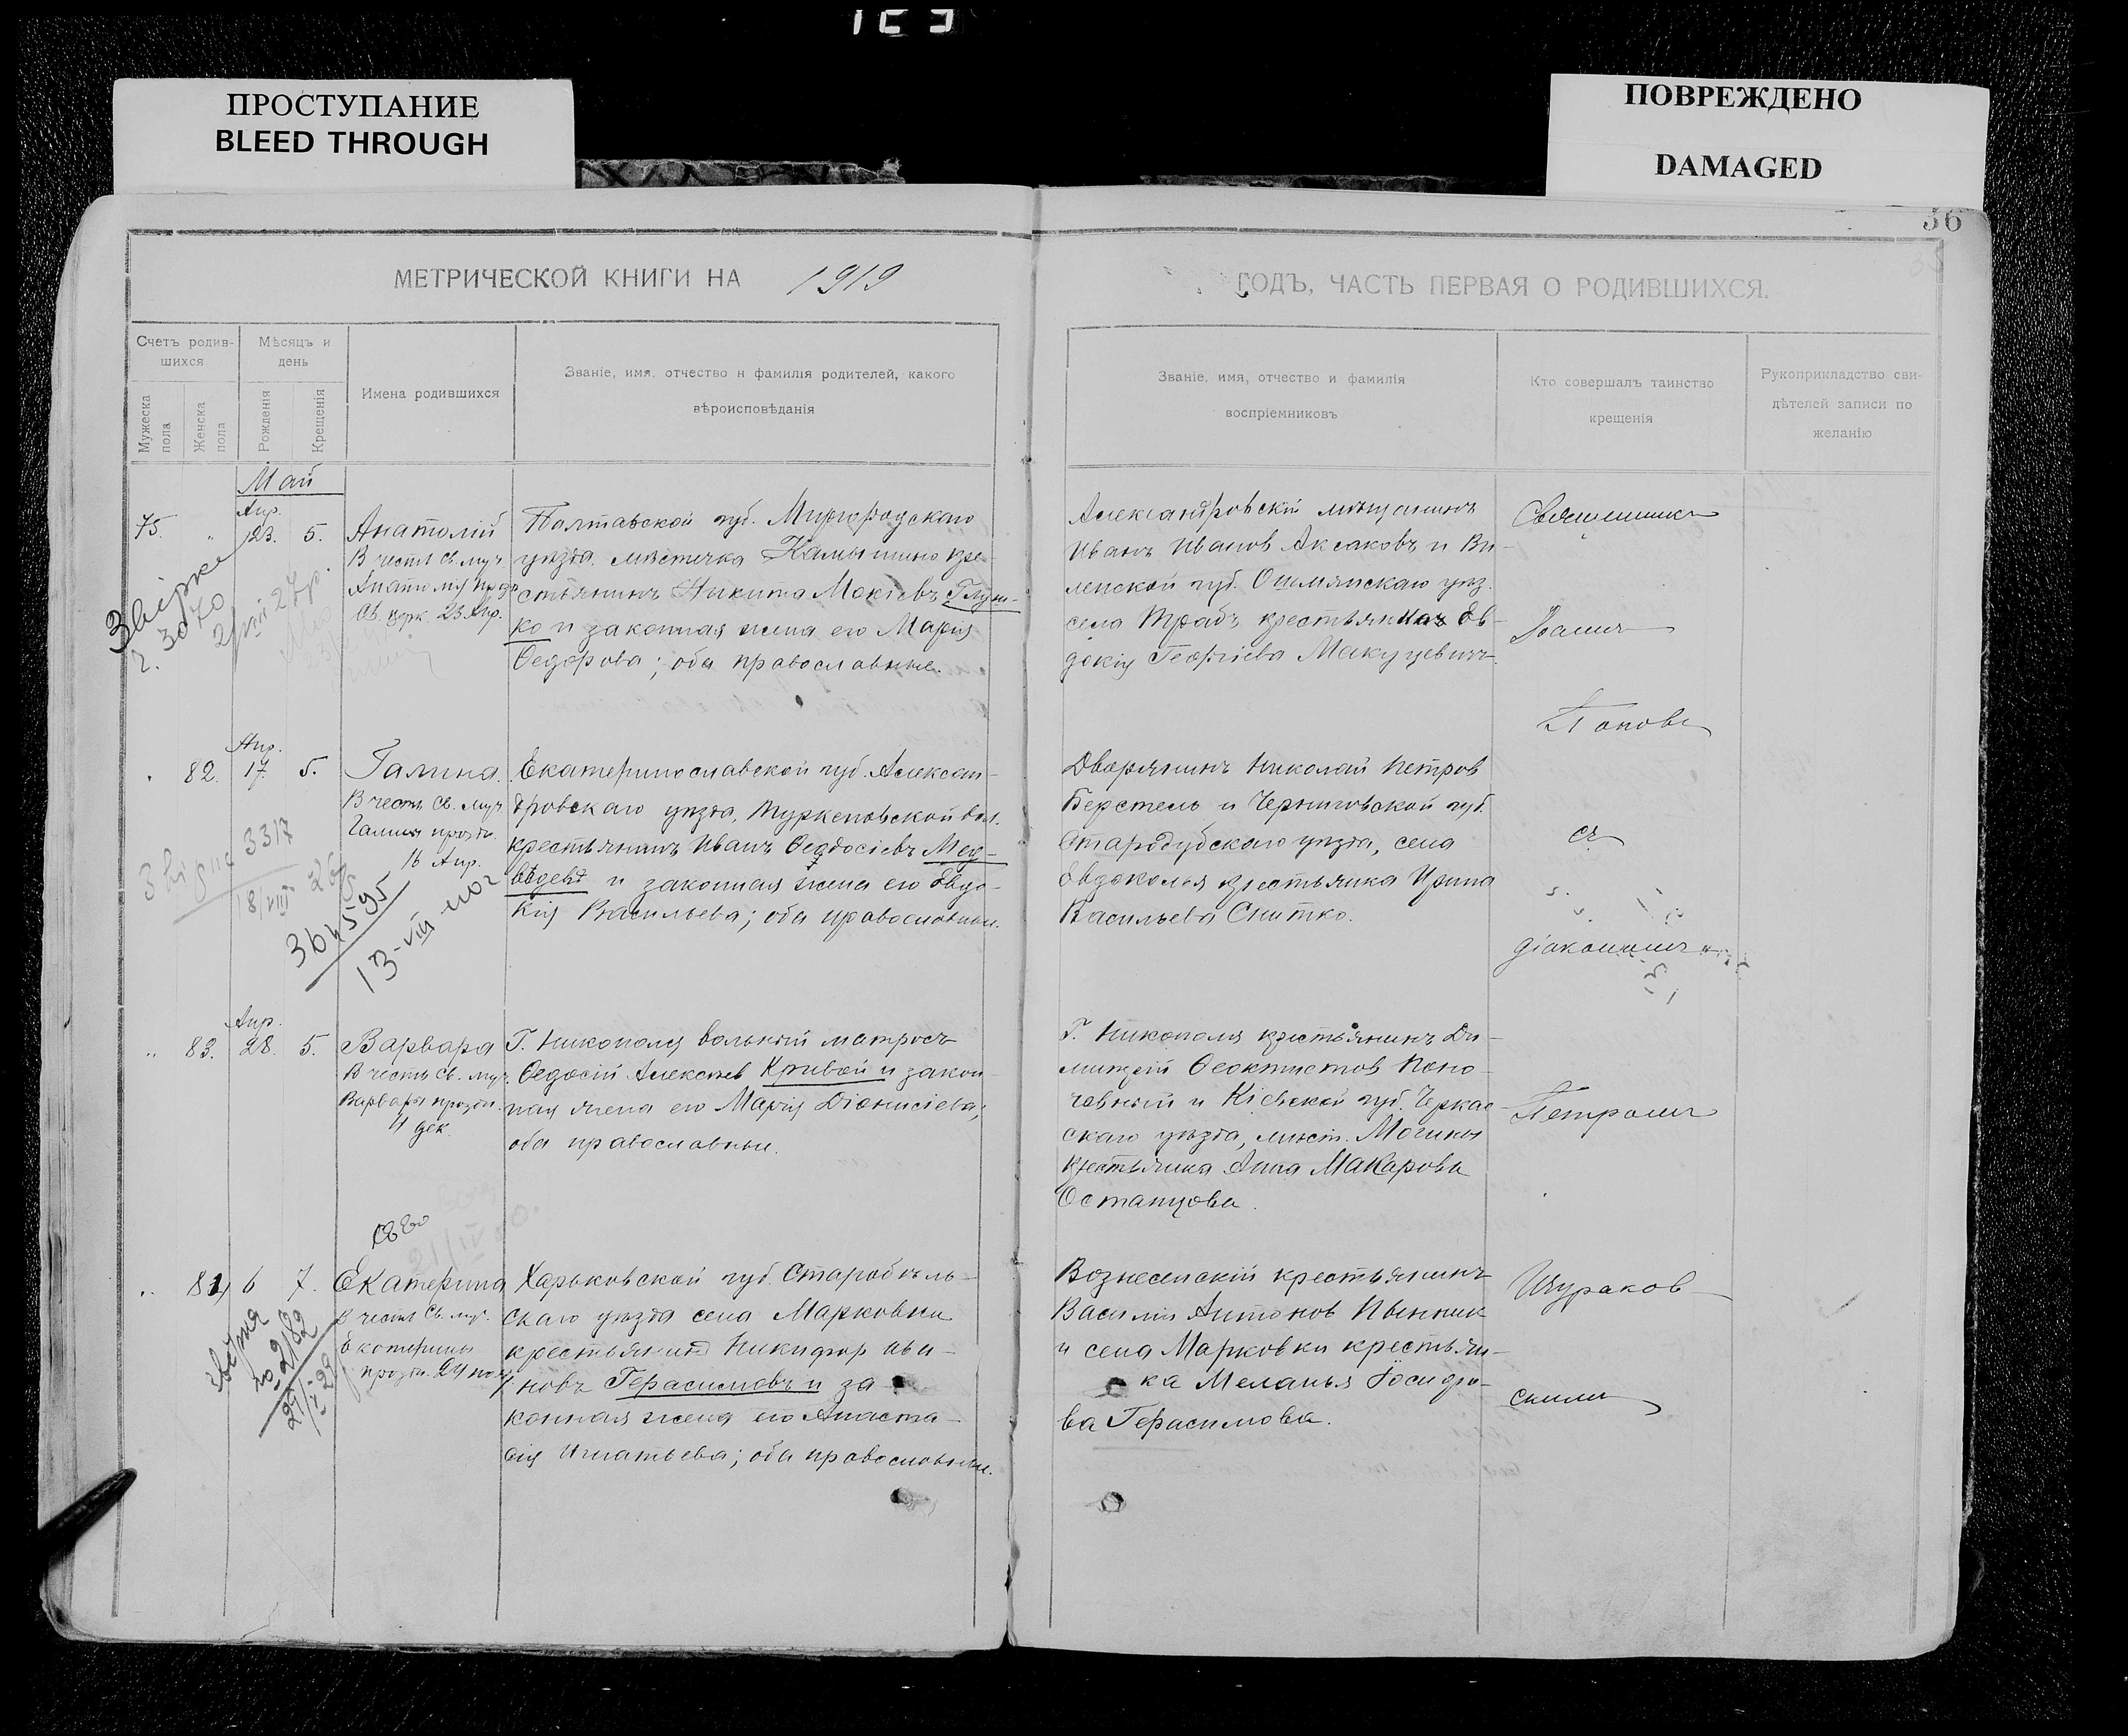 ПРОСТУПАНИЕ
BLEED THROUGH
ПОВРЕЖДЕНО
DAMAGED
36
МЕТРИЧЕСКОЙ КНИГИ НА 1919
ГОДЪ, ЧАСТЬ ПЕРВАЯ О РОДИВШИХСЯ.
Счетъ родив-
шихся
Мужеска пола
Женска пола
Мѣсяцъ и
день
Рожденія
Крещенія
Имена родившихся
Званіе, имя, отчество и фамилія родителей, какого
вѣроисповѣданія
Званіе, имя, отчество и фамилія
воспріемниковъ
Кто совершалъ таинство
крещенія
Рукоприкладство сви-
дѣтелей записи по
желанію
Май
Апр.
75. " 23. 5.
Анатолій
В честь Св. муч.
Анатолія празд.
Св. церк. 23 Апр.
Звірка
ч. 3070
Полтавской губ. Миргородскаго
уѣзда, мѣстечка Камышино кре-
стьянинъ Никита Мокіевъ
ко и законная жена его Марія
Ѳедорова; оба православные.
Александровскій мѣщанинъ
Иванъ Иванов Аксаковъ и Ви-
ленской губ. Ошмянскаго уѣз.
села Трабъ крестьянка Ев-
докія Георгіева Мацуцевичъ.
Апр.
82. 17. 5.
Галина.
В честь Св. муч.
Галины праздн.
16 Апр.
3317
18/VIII 26
364595
13-VIII
Екатеринославской губ. Алексан-
дровскаго уѣзда, Туркеновской вол.
крестьянинъ Иванъ Ѳеодосіевъ Мед-
вѣдевъ и законная жена его Евдо-
кія Васильева; оба православные.
Дворянинъ Николай Петров
Берстель и Черниговской губ.
Стародубскаго уѣзда, села
Евдоколья крестьянка Ирина
Васильева Снитко.
Апр.
83. 28. 5.
Варвара
В честь Св. муч.
Варвары праздн.
4 дек.
Г. Никополя вольный матросъ
Ѳедосій Алексѣев Кривой и закон-
ная жена его Марія Діонисіева;
оба православные.
Г. Никополя крестьянинъ Ди-
митрій Ѳеоктистов Поно-
чевный и Кіевской губ. Черкас-
скаго уѣзда, мѣст. Мочины
крестьянка Анна Макарова
Останцова.
84 6 7.
Екатерина
В честь Св. муч.
Екатерины
праздн. 24 нояб.
2182
Харьковской губ. Старобѣль-
скаго уѣзда села Марковки
крестьянинъ Никифор Ива-
новъ Герасимовъ и за
конная жена его Анаста-
сія Игнатьева; оба православные.
Вознесенскій крестьянинъ
Василій Антонов Пвинник
и села Марковки крестьян-
ка Меланья Іосифо-
ва Герасимова.
Священникъ
Іоаннъ
Поповъ
съ
діакономъ
Петромъ
Шураков-
скимъ